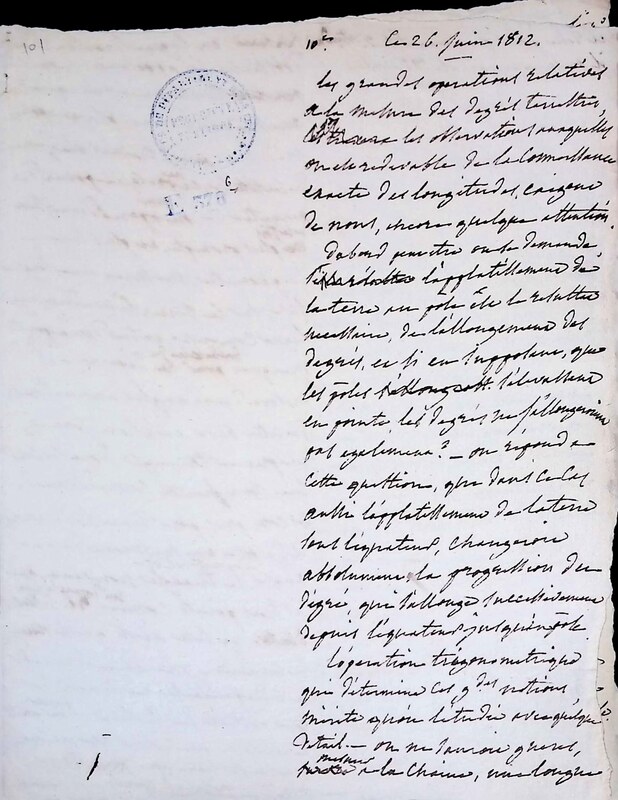 101
10e
Ce 26. Juin 1812.
E 376
6
les grandes operations relatives
a la mesure des degrés terrestres,
les observations auxquelles
on est redevable de la connaissance
exacte des longitudes, exigent
de nous, encore quelque attention.
Dabord peut etre on se demande
l'applatissement de
la terre au pôle est le resultat
necessaire, de l'allongement des
degrés, et si en supposant, que
les pôles s'élevassent
en pointe, les degrés ne s'allongeroient
pas egalement? — on répond a
cette question, que dans ce cas
aussi l'applatissement de la terre
sous l'équateur, changeroit
absolument la progression du
dégré, qui s'allonge successivement
depuis l'équateur jusqu'au pôle
L'opération trigonometrique
qui détermine ces gdes notions
mérite qu'on l'etudie avec quelque
détail. — on ne sauroit gueres,
mesurer a la chaine, une longue